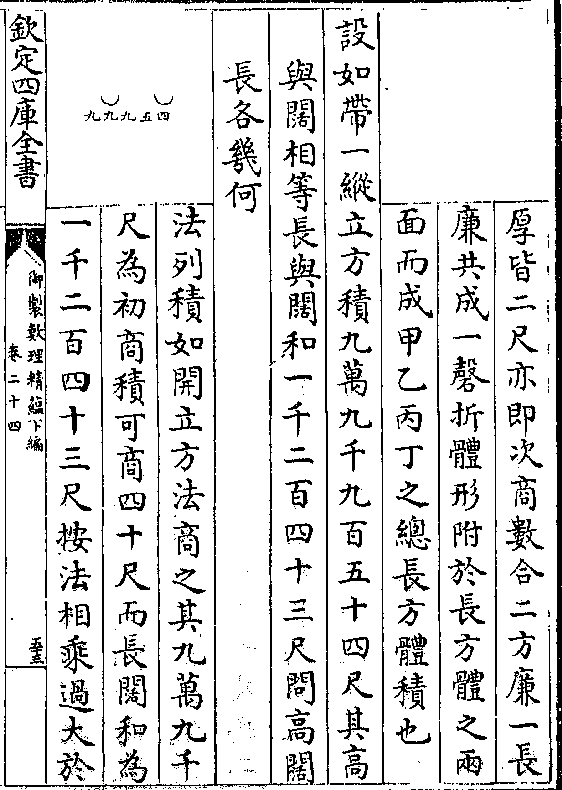 厚皆二尺亦即次商數合二方廉一長
廉共成一磬折體形附於長方體之兩
面而成甲乙丙丁之總長方體積也
設如帶一縱立方積九萬九千九百五十四尺其高
與闊相等長與闊和一千二百四十三尺問高闊
長各幾何
法列積如開立方法商之其九萬九千
尺為初商積可商四十尺而長闊和為
一千二百四十三尺按法相乘過大於
九九九五四
欽定四庫全書
御製數理精蘊下編
卷二十四